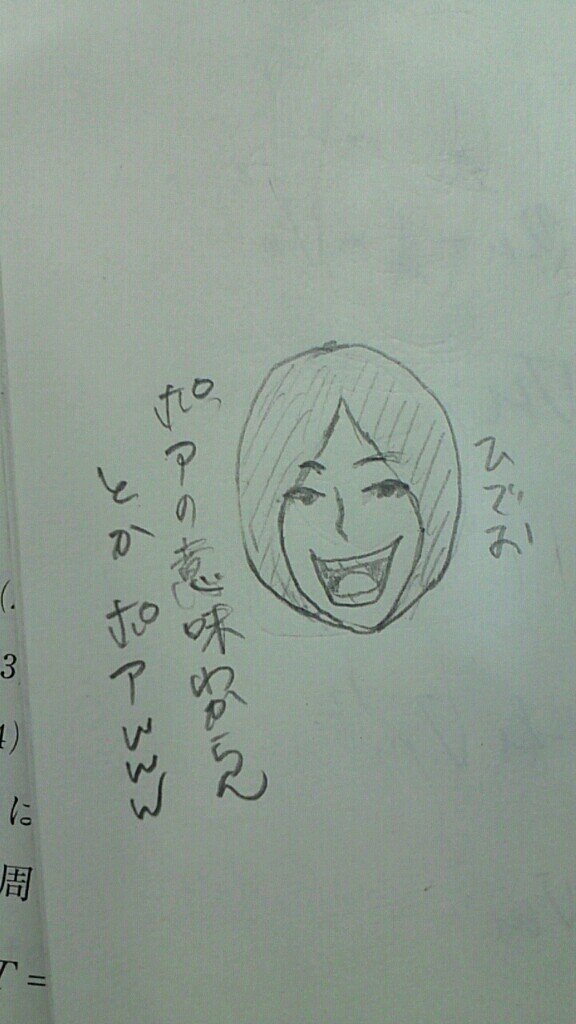 ひでお
ポアの意味わからん
とかポアwww
(.
3
4)
に
周
T =